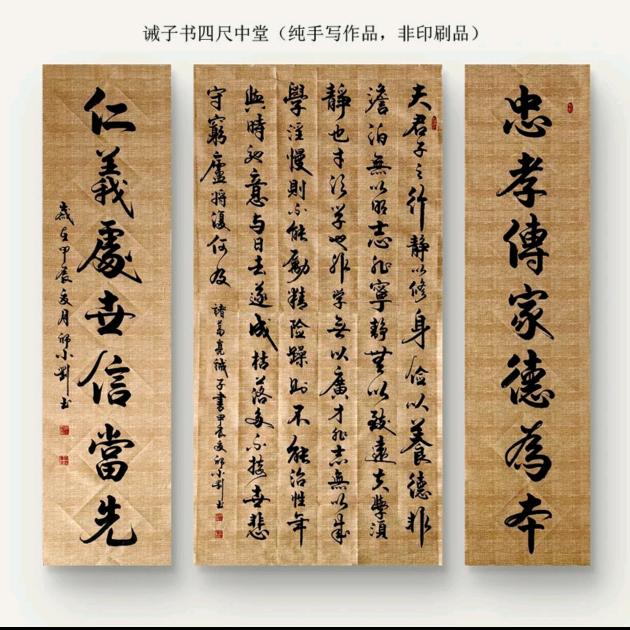 诫子书四尺中堂（纯手写作品，非印刷品）
忠孝傳家德為本
夫君子之行静以修身俭以養德非
澹泊無以明志非寧静無以致遠夫學須
靜也才须学也非学無以廣才非志無以成
學淫慢則不能勵精险躁則不能治性年
與時馳意与日去遂成枯落多不接世悲
守窮廬將復何及
諸葛亮誡子書甲辰夏小劉书
仁義處世信當先
歲在甲辰夏月小劉书